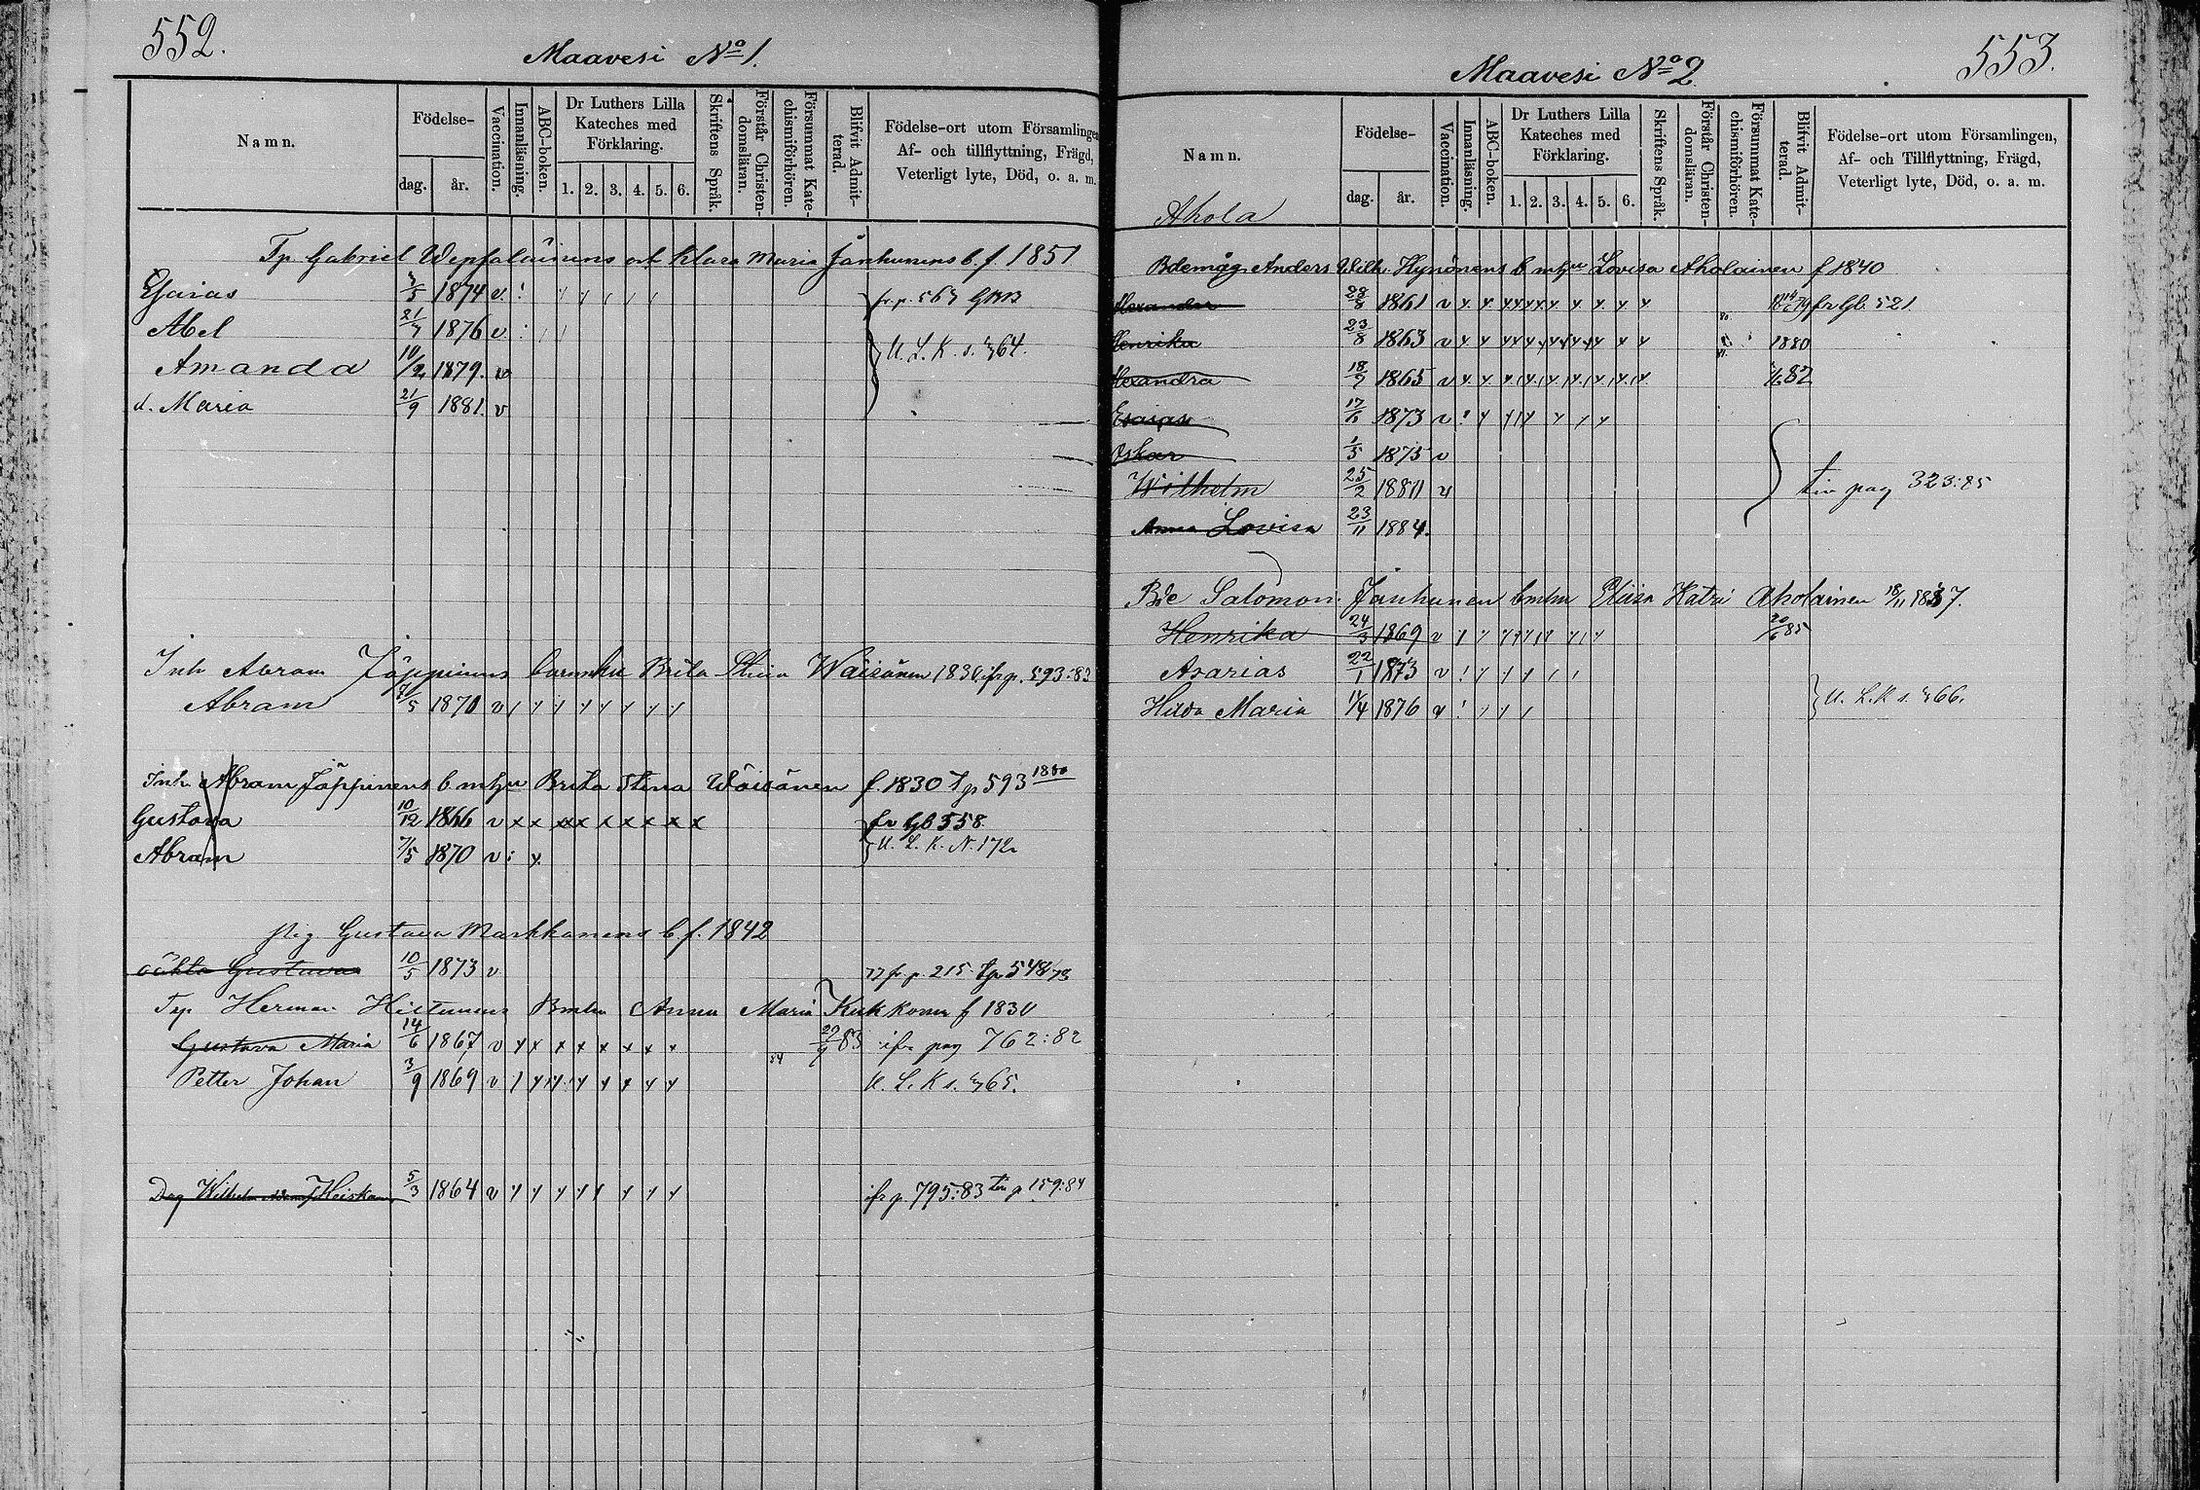 552.
Maavesi No 1.
Namn.
Födelse-
dag.
år.
Vaccination.
Innanläsning.
ABC-boken.
Dr Luthers Lilla
Kateches med
Förklaring.
1. 2. 3. 4. 5. 6.
Skriftens Språk.
Förstår Christen-
domsläran.
Försummat Kate-
chismiförhören.
Blifvit Admit-
terad.
Födelse-ort utom Församlingen
Af- och tillflyttning, Frägd,
Veterligt lyte, Död, o. a. m.
Gabriel Wepsäläinens och Klara Maria Jänhunens b. f. 1851
Esaias 1874 v fr. p. 567
Abel 21/7 1876 v U. L. K. s. 464.
Amanda 10/2 1879. v
d. Maria 21/9 1881 v
Inh Abram Jäppinens Brita Stina Wäisänen 1830 ifr p. 593:83
Abram 7/5 1870 v
Inh. Abram Jäppinens b. m. hu Brita Stina Wäisänen f. 1830 593 1880
Gustava 10/12 1866 v x x xx x x x x x fr Gb 558.
Abram 7/5 1870 v : x U. L. K. N. 172
Gustava Markkanens b f. 1842
oäkta Gustava 10/5 1873 v 77 fr p. 215. 548/78
Herman Hiltunens Anna Maria Kukkonen f 1830
Gustava Maria 14/6 1867 v 29/9 83 ifr pag 762:82
84
Petter Johan 3/9 1869 v U. L. K s. 465.
Wilhelm Heiskanen 5/3 1864 v ifr p. 795:83 p 159:84
553.
Maavesi No 2
Namn.
Födelse-
dag.
år.
Vaccination.
Innanläsning.
ABC-boken.
Dr Luthers Lilla
Kateches med
Förklaring.
1. 2. 3. 4. 5. 6.
Skriftens Språk.
Förstår Christen-
domsläran.
Försummat Kate-
chismiförhören.
Blifvit Admit-
terad.
Födelse-ort utom Församlingen,
Af- och Tillflyttning, Frägd,
Veterligt lyte, Död, o. a. m.
Ahola
Bdemåg Anders Wilh. Hynönens b mhu Lovisa Aholainen f 1840
Alexander 28/8 1861 v fr Gb. 521
Henrika 23/8 1863 v 1880
Alexandra 18/7 1865 v 82
Esaias 17/6 1873 v
Oskar 1/5 1875 v
Wilhelm 25/2 1881 v pag 323:85
Anna Lovisa 23/11 1884.
Bde Salomon Jänhunen bmhu Eliisa Katri Aholainen 18/11 1837.
Henrika 24/3 1869 v 20/6 85
Asarias 22/1 1873 v
Hilda Maria 14/4 1876 v U. L. K s. 466.